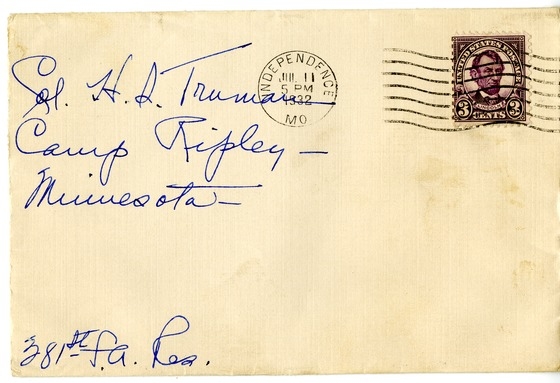 Col. H. S. Truman
Camp Ripley —
Minnesota —
381st F.A. Res.
INDEPENDENCE
JUL 11
5 PM
1932
MO.
UNITED STATES POSTAGE
LINCOLN
3 CENTS 3